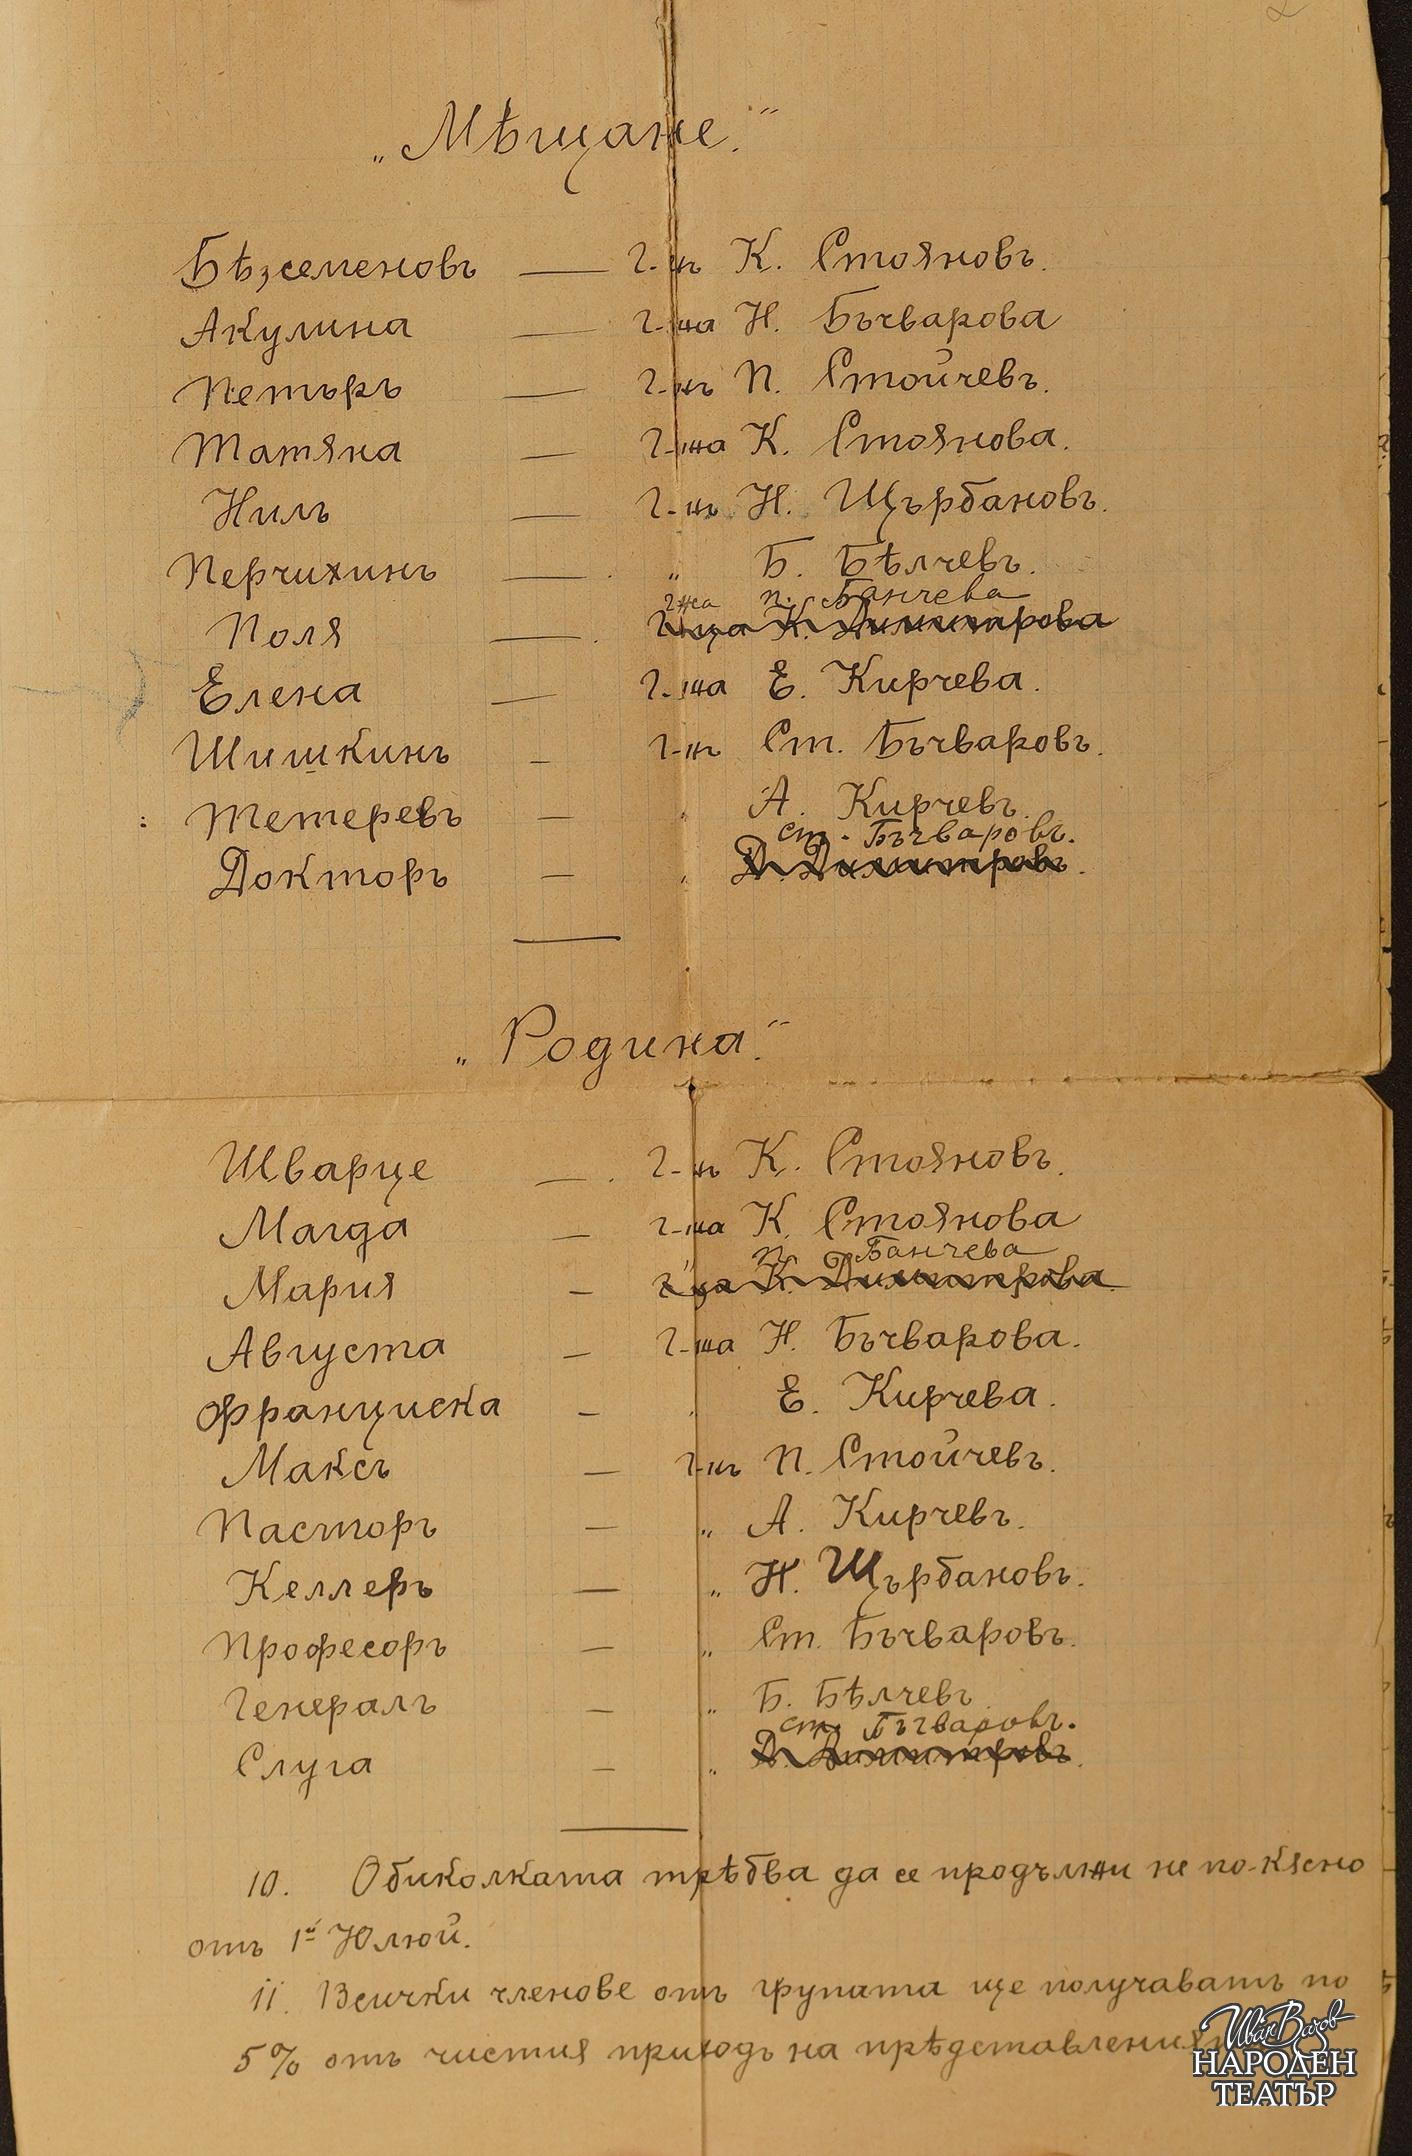 „Мѣщане.“
Бѣзсеменовъ — Г-нъ К. Стояновъ.
Акулина — Г-жа Н. Бъчварова
Петъръ — Г-нъ П. Стойчевъ.
Татяна — Г-жа К. Стоянова.
Нилъ — Г-нъ Н. Щърбановъ.
Перчихинъ — „ Б. Бѣлчевъ.
Г-жа П. Банчева
Поля — Г-ца К. Димитрова
Елена — Г-жа Е. Кирчева.
Шишкинъ — Г-нъ Ст. Бъчваровъ.
Тетеревъ — „ А. Кирчевъ.
Ст. Бъчваровъ.
Докторъ — „ Д. Димитровъ.
„Родина.“
Шварце — Г-нъ К. Стояновъ.
Магда — Г-жа К. Стоянова
П. Банчева
Мария — Г-ца К. Димитрова.
Августа — Г-жа Н. Бъчварова.
Франциска — „ Е. Кирчева.
Максъ — Г-нъ П. Стойчевъ.
Пасторъ — „ А. Кирчевъ.
Келлеръ — „ Н. Щърбановъ.
Професоръ — „ Ст. Бъчваровъ.
Генералъ — „ Б. Бѣлчевъ.
Ст. Бъчваровъ.
Слуга — „ Д. Димитровъ.
10. Обиколката трѣбва да се продължи не по-късно
отъ 1й Юлюй.
11. Всички членове отъ групата ще получаватъ по
5% отъ чистия приходъ на прѣдставленията
Иван Вазов
НАРОДЕН
ТЕАТЪР